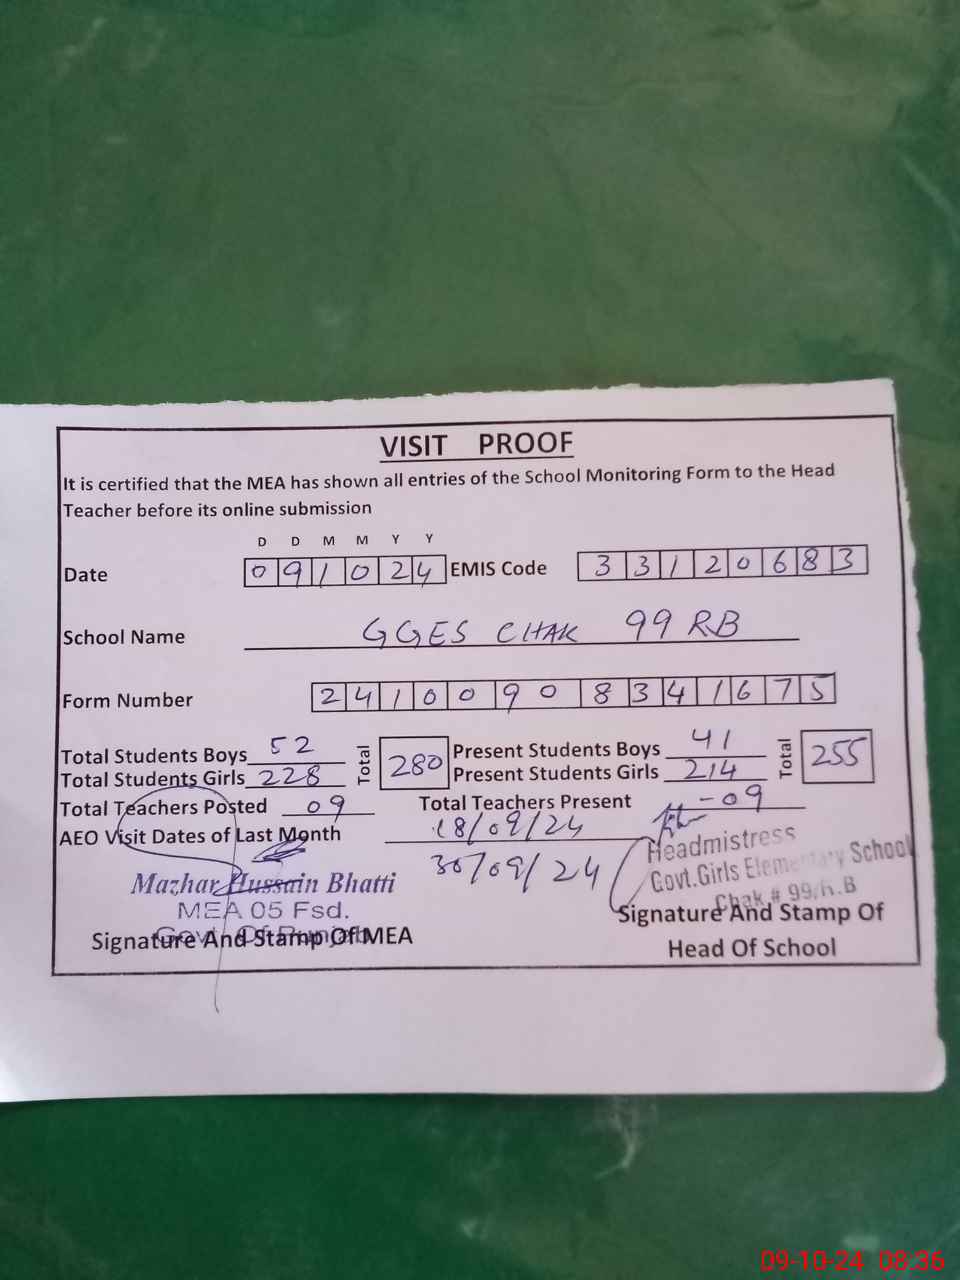 VISIT PROOF
It is certified that the MEA has shown all entries of the School Monitoring Form to the Head
Teacher before its online submission
D D M M Y Y
Date 0 9 1 0 2 4 EMIS Code 3 3 1 2 0 6 8 3
School Name GGES CHAK 99 RB
Form Number 2 4 1 0 0 9 0 8 3 4 1 6 7 5
Total Students Boys 52 Total 280 Present Students Boys 41 Total 255
Total Students Girls 228 Present Students Girls 214
Total Teachers Posted 09 Total Teachers Present -09
AEO Visit Dates of Last Month 18/09/24
30/09/24
Headmistress
Govt.Girls Elementary School
Chak # 99/R.B
Mazhar Hussain Bhatti
MEA 05 Fsd.
Govt. Of Punjab
Signature And Stamp Of MEA
Signature And Stamp Of
Head Of School
09-10-24 08:36